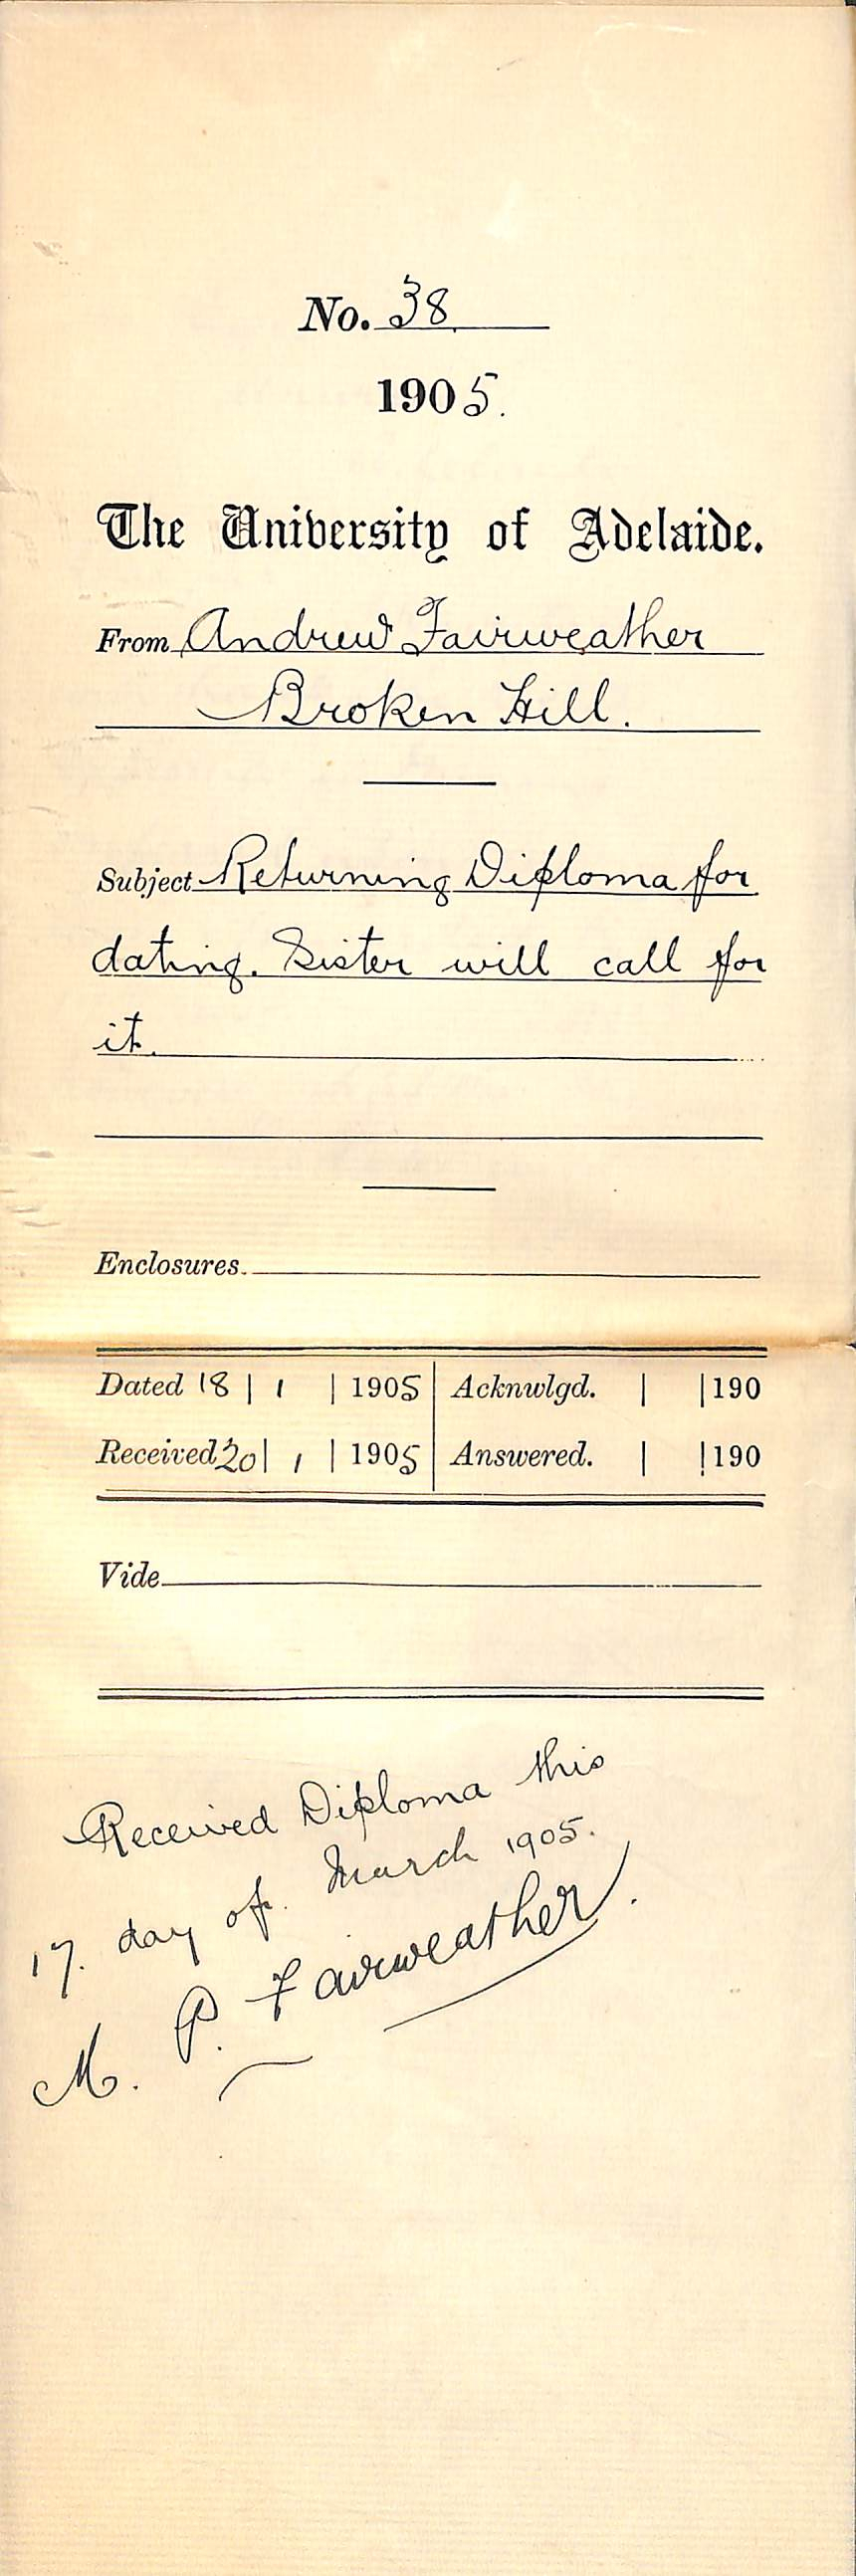 No. 38.
1905.
The University of Adelaide.
From Andrew Fairweather
Broken Hill.
Subject Returning Diploma for
dating. Sister will call for
it.
Enclosures.
Dated 18 | 1 | 1905 | Acknwlgd. | | 190
Received 20 | 1 | 1905 | Answered. | | 190
Vide
Received Diploma this
17. day of. March 1905.
M. P. Fairweather.